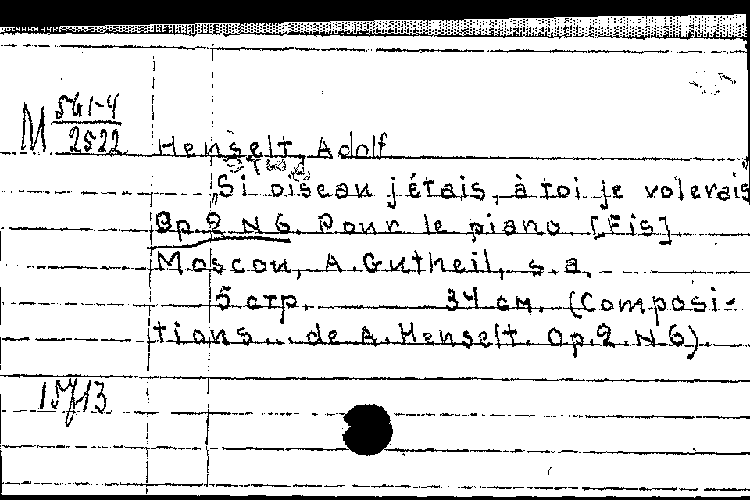 M 561-4
2522
Henselt, Adolf
"Si oiseau j'étais, à toi je volerais"
Op.2 N 6. Pour le piano. [Fis]
Moscou, A.Gutheil, s.a.
5 стр. 34 см. (Composi-
tions... de A.Henselt. Op.2.N.6).